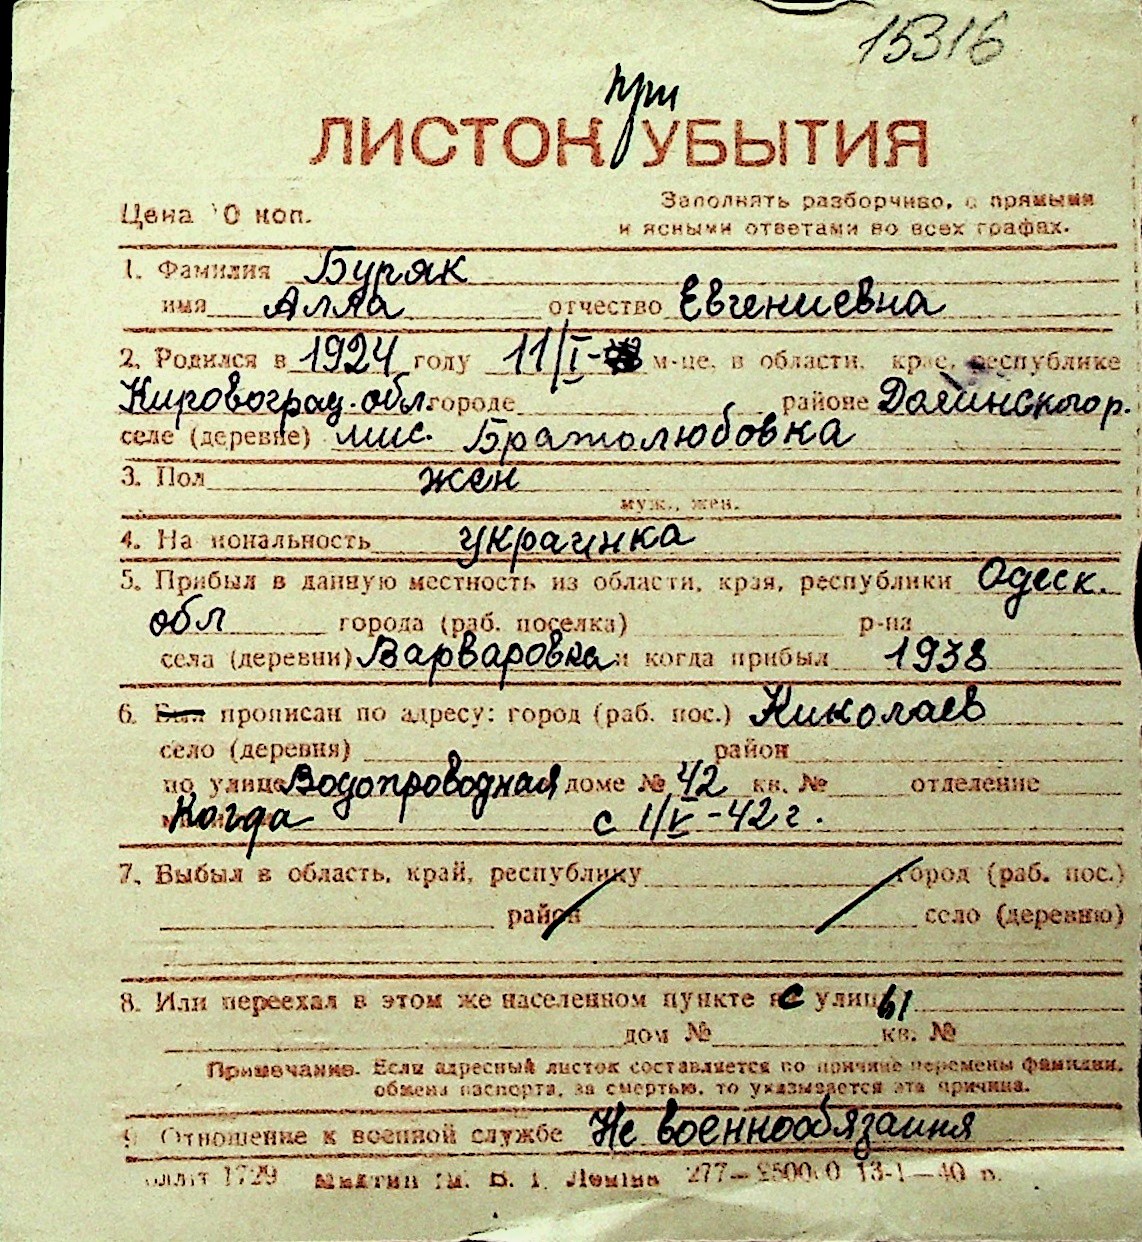 15316
при
ЛИСТОК УБЫТИЯ
Цена 0 коп.
Заполнять разборчиво, с прямыми
и ясными ответами во всех графах.
1. Фамилия Буряк
имя Алла отчество Евгениевна
2. Родился в 1924 году 11/I- м-це, в области, крае, республике
Кировоград. обл. городе районе Долинского р.
селе (деревне) мис. Братолюбовка
3. Пол жен
муж., жен.
4. На иональность украинка
5. Прибыл в данную местность из области, края, республики Одеск.
обл города (раб. поселка) р-на
села (деревни) Варваровка и когда прибыл 1938
6. Был прописан по адресу: город (раб. пос.) Николаев
село (деревня) район
по улице Водопроводная доме № 42 кв. № отделение
Когда с 1/V-42 г.
7. Выбыл в область, край, республику город (раб. пос.)
район село (деревню)
8. Или переехал в этом же населенном пункте с улицы
дом № кв. №
Примечание. Если адресный листок составляется по причине перемены фамилии,
обмена паспорта, за смертью, то указывается эта причина.
9. Отношение к военной службе Не военнообязанная
1729 В. І. Леніна 277— 13-1—40 р.